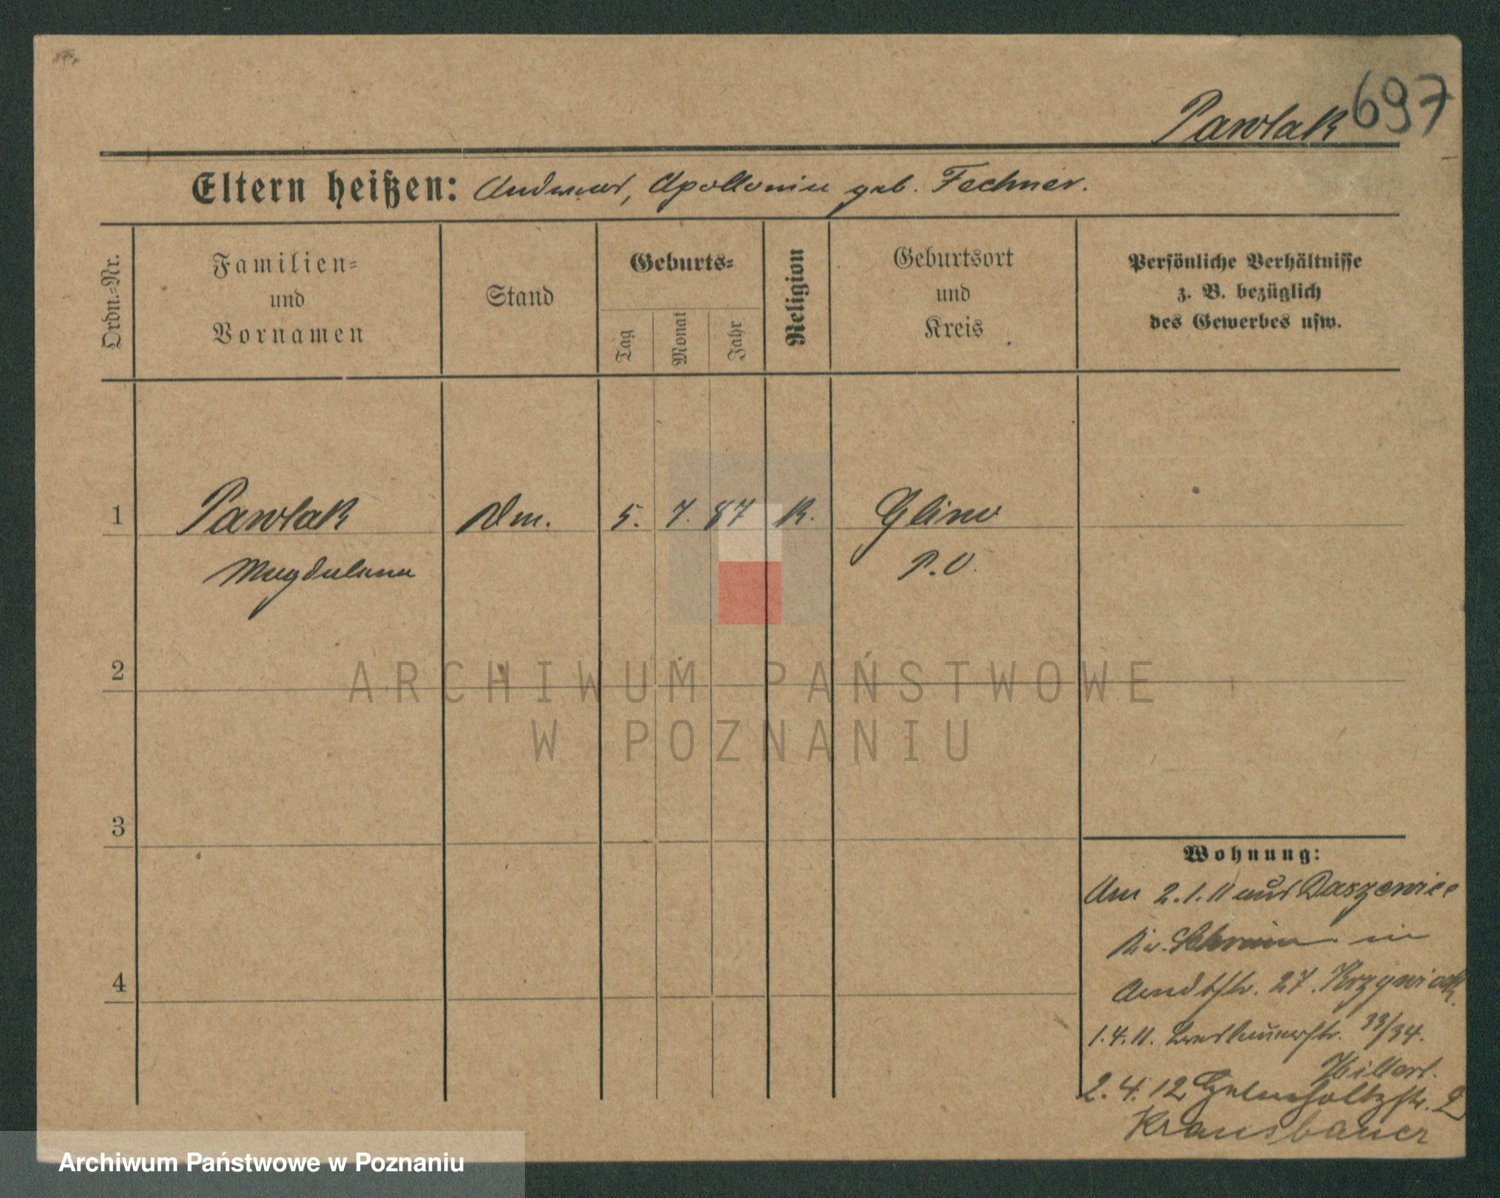 Pawlak 697
Eltern heißen: Andreas, Apollonia geb. Fechner.
Ordn.-Nr.
Familien-
und
Vornamen
Stand
Geburts-
Tag
Monat
Jahr
Religion
Geburtsort
und
Kreis
Persönliche Verhältnisse
z. B. bezüglich
des Gewerbes usw.
1 Pawlak Dm. 5. 7. 87 K. Glino
Magdalena P.O.
2
3
4
Wohnung:
Am 2.1.11 aus Daszewice
Kr. Schrimm in
Arndtstr. 27.
1.4.11. 33/34.
Hillert.
2.4.12 2
Krausbauer
ARCHIWUM PAŃSTWOWE
W POZNANIU
Archiwum Państwowe w Poznaniu